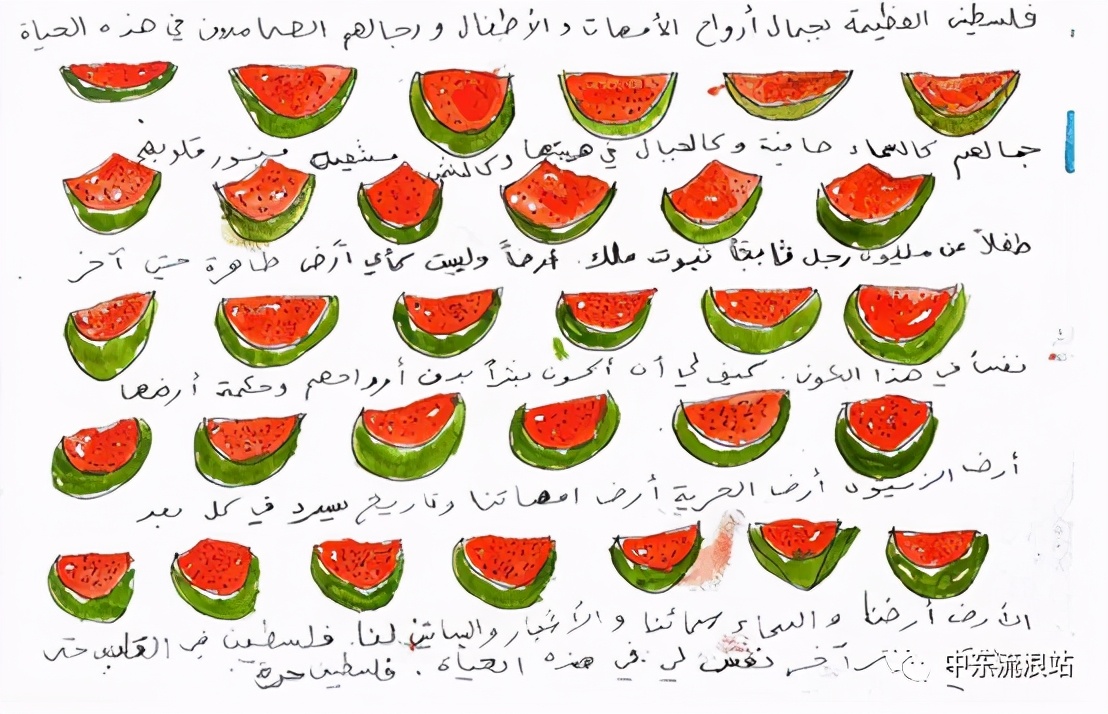 فلسطين العظيمة بجمال أرواح الأمهات و الأطفال و رجالهم الصامدون في هذه الحياة
جمالهم كالسماء صافية و كالجبال في هيبتها و كالشمس قلوبهم
طفلاً عن رجل ثبوت ملك. أرضاً وليست كأي أرض طاهرة حتى آخر
نفساً في هذا الكون. كيف لي أن أكون بشراً بدون أرواحهم وحكمة أرضها
أرض الزيتون أرض الحرية أرض امهاتنا وتاريخ يسرد في كل
الأرض أرضنا و السماء سمائنا و الأشجار والبساتين لنا. فلسطين في القلب حتى
آخر نفس لي في هذه الحياة. فلسطين حرة
中东流浪站